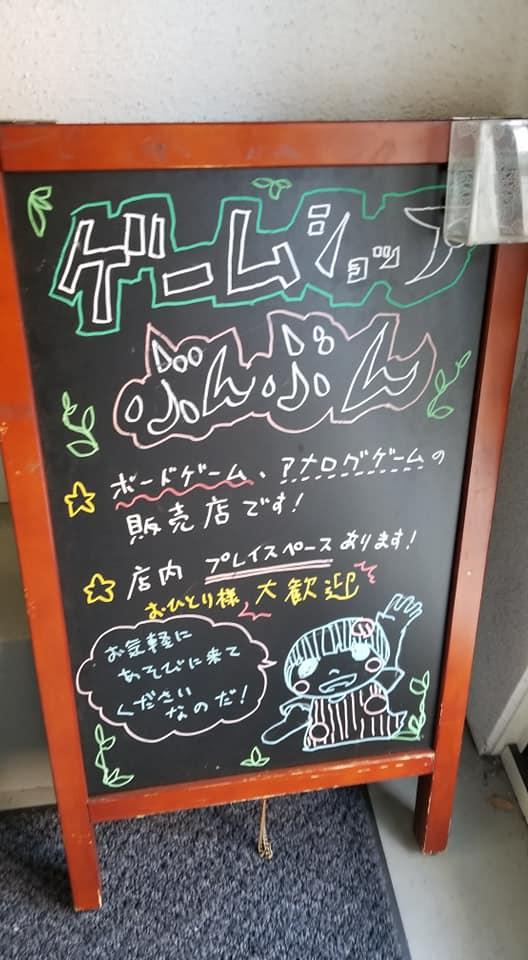 ゲームショップ
ぶんぶん
☆ ボードゲーム、アナログゲームの
販売店です！
☆ 店内 プレイスペースあります！
おひとり様 大歓迎
お気軽に
あそびに来て
ください
なのだ！